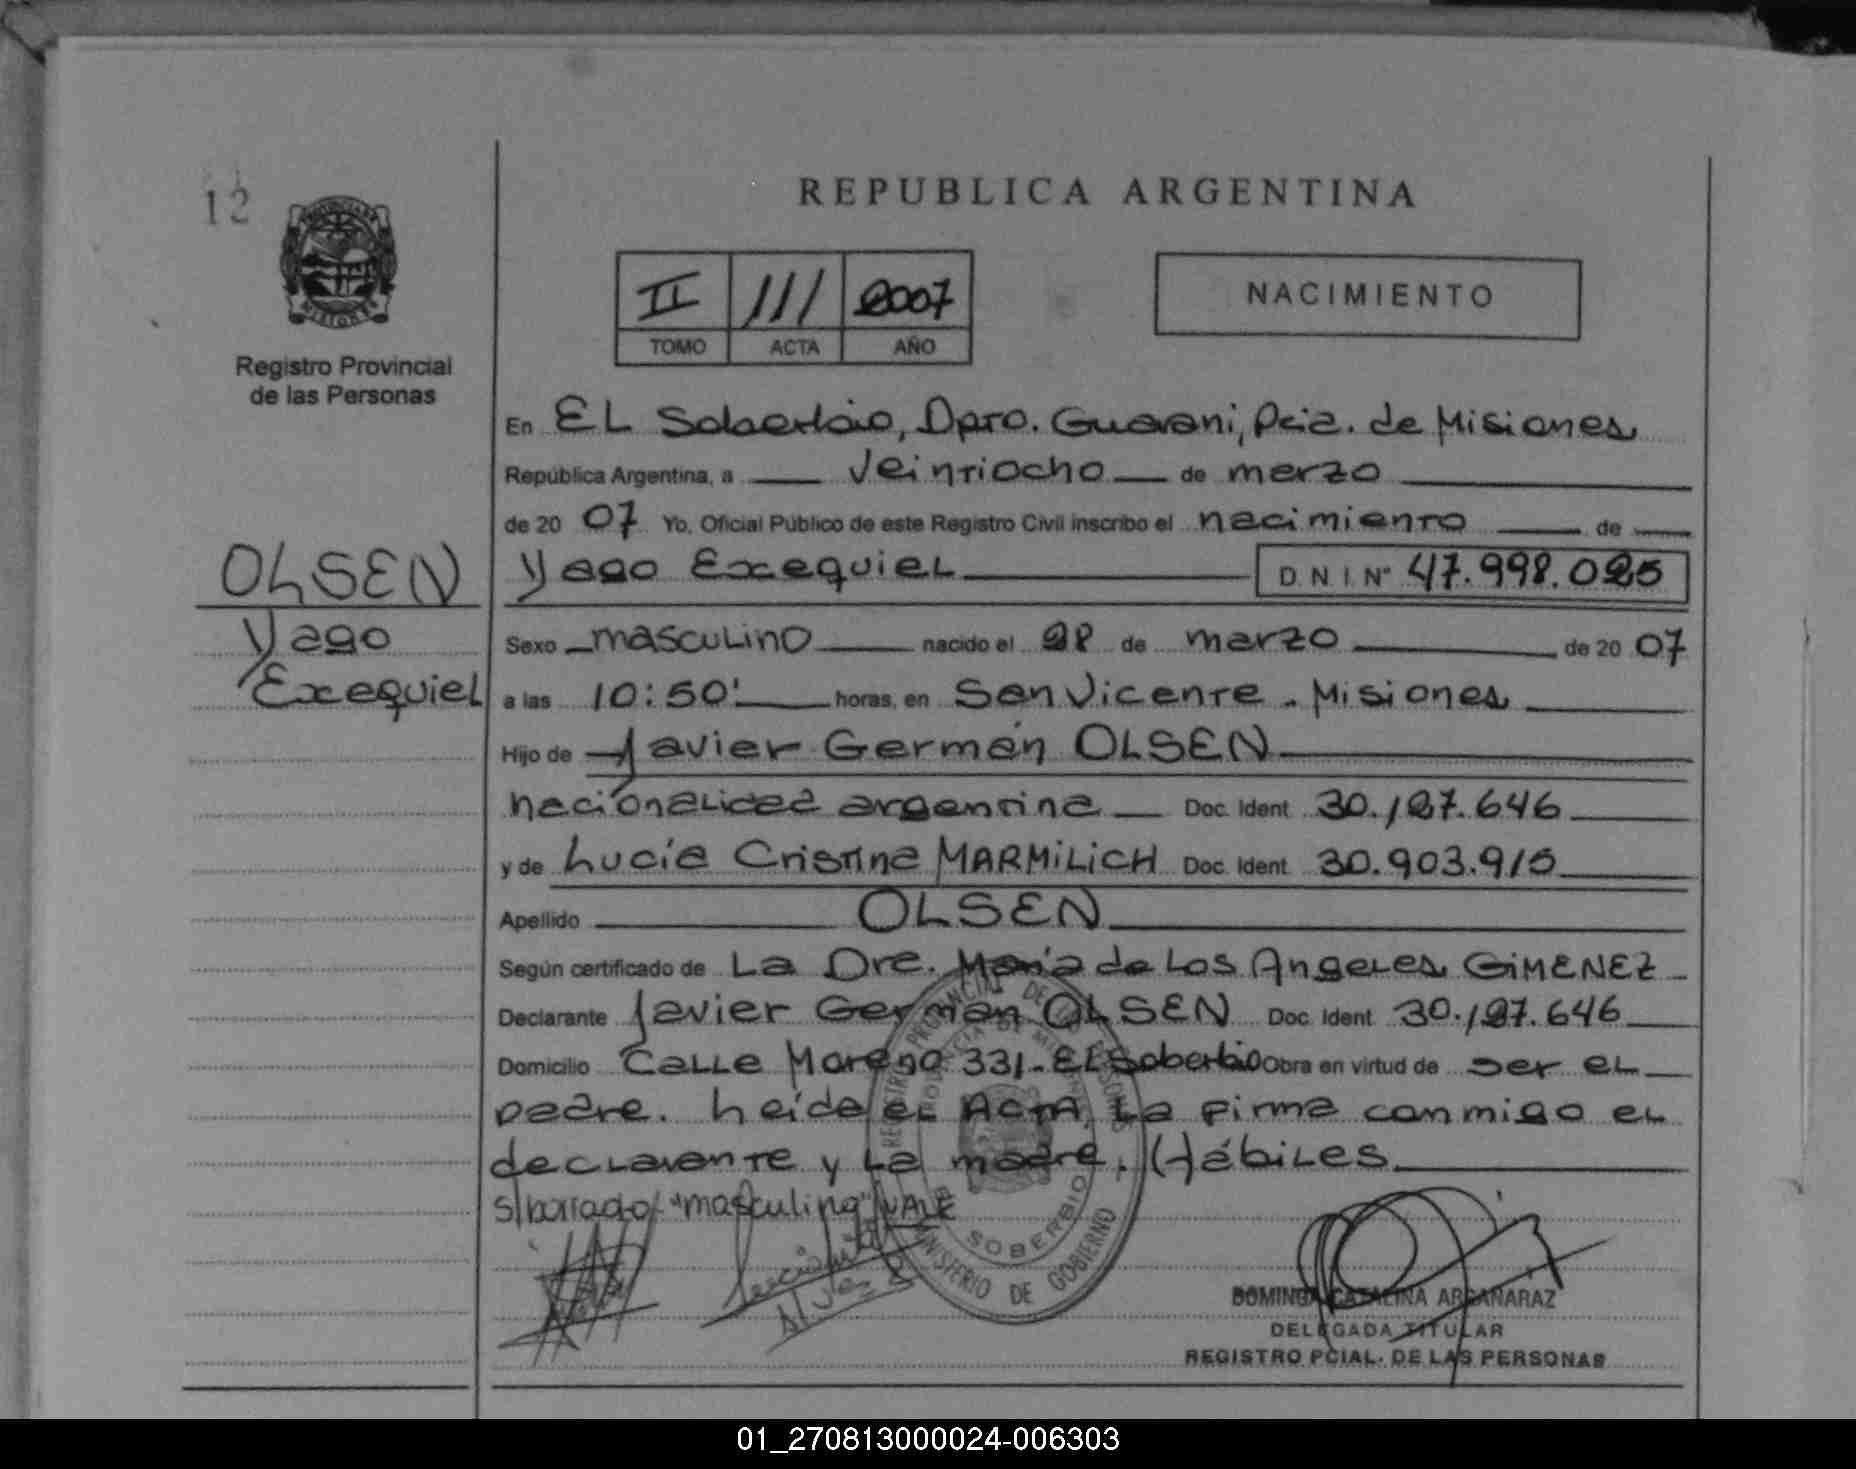 12
REPUBLICA ARGENTINA
II 111 2007
TOMO ACTA AÑO
NACIMIENTO
Registro Provincial
de las Personas
En EL Soberbio, Dpto. Guaraní, Pcia. de Misiones
República Argentina, a veintiocho de marzo
de 20 07 Yo, Oficial Público de este Registro Civil inscribo el nacimiento de
Yago Exequiel D.N.I. Nº 47.998.025
OLSEN
Yago
Exequiel
Sexo masculino nacido el 28 de marzo de 20 07
a las 10:50' horas, en San Vicente - Misiones
Hijo de Javier Germán OLSEN
nacionalidad argentina Doc. Ident. 30.127.646
y de Lucía Cristina MARMILICH Doc. Ident. 30.903.915
Apellido OLSEN
Según certificado de La Dra. María de Los Angeles GIMENEZ
Declarante Javier Germán OLSEN Doc. Ident. 30.127.646
Domicilio Calle Moreno 331 - El Soberbio Obra en virtud de ser el
padre. Leída el Acta, La firma conmigo el
declarante y La madre. Hábiles
S/borrado/ "masculino" VALE
SOBERBIO
MINISTERIO DE GOBIERNO
DOMINGA CATALINA ARGAÑARAZ
DELEGADA TITULAR
REGISTRO PCIAL. DE LAS PERSONAS
01_270813000024-006303